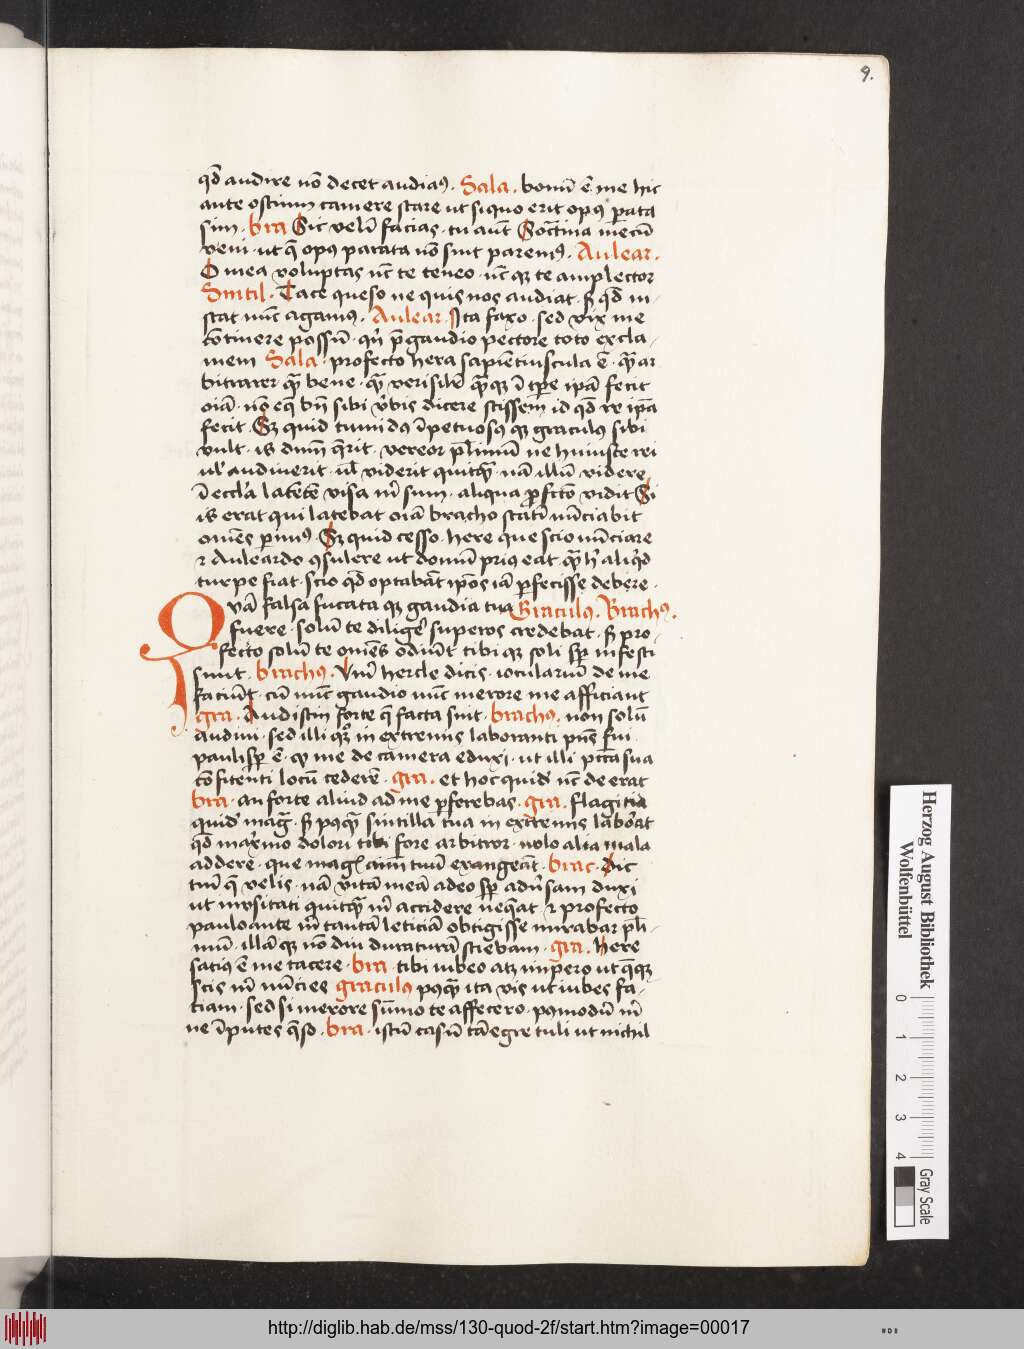 9.
qd̄ audire nō decet audiaꝰ. Sala. bonū ē me hic
ante ostium camere stare ut si quo erit opꝰ parata
sim. bra Sic velī facias. tu aūt Soctina mecū
veni. ut q̄ opꝰ parata nō sint paremꝰ. Aulear.
O mea voluptas nc̄ te teneo. nc̄ qȝ te amplector
Sintil. Tace queso ne quis nos audiat. sꝫ qd̄ in-
stat nūc agamꝰ. Aulear. Ita faxo. sed vix me
cōtinere possū. qn̄ p̄ gaudio pectore toto excla-
mem Sala. profecto hera sapiētiuscula ē. quā ar
bitrarer quā bene. quā verisilē quāqȝ ī tp̄e ipā fecit
oīa. nō eqȝ bn̄ sibi v̄bis dicere scissem id qd̄ re ipā
fecit. Sꝫ quid tumidꝰ īpetuosꝰ qȝ graculꝰ sibi
vult. is dnm̄ q̄rit. vereor pl̄imū ne huiusce rei
ul̓ audiverit. ul̓ viderit quitqꝫ. nā illū videre
ī eccl̓a latētē visa m̄ sum. aliqua ꝓfcto vidit Si
is erat qui latebat oīa bracho statī nūciabit
omēs perimꝰ. Sꝫ quid cesso. here que scio nūciare
⁊ Auleardo ꝯsulere ut domū prius eat quā h̓ aliqd̓
turpe fiat. scio qd̄ optabāt ipōs iā ꝑfecisse debere.
Qvā falsa fucata qȝ gaudia tua Graculꝰ. Brachꝰ.
fuere. solū te diligē superos credebat. sꝫ pro-
fecto solū te omēs odiūt. tibi qȝ soli sp̄ infesti
sunt. brachꝰ. Vm̄ hercle dicis. ioculariū de me
faciūt. cū nūc gaudio nūc merore me afficiant
gra. Audistin forte q̄ facta sint. brachꝰ. non solū
audivi. sed illi qȝ in extremis laboranti pn̄s fui
paulisꝑ ē. qꝫ me de camera eduxi. ut illi pctā sua
cōfitenti locū cederē. gra. et hoc quid̓ nc̄ deerat
bra. an forte aliud ad me ꝑferebas. gra. flagitia
quid̓ mag̓. sꝫ pꝰqꝫ sintilla tua in extremis laborat
qd̄ maximo dolori tibi fore arbitror. nolo alia mala
addere. que mag̓ aīm tuū exangeāt. brac. dic
tm̄ q̄ velis. nā vitā meā adeo sp̄ adūsam duxi
ut īnsitati quitqꝫ m̄ accidere neqat. ⁊ profecto
pauloante m̄ tantā leticiā obtigisse mirabar pl̄i-
mū. illā qȝ nō diu duraturā sciebam. gra. here
satius ē me tacere. bra. tibi iubeo atqȝ impero ut q̄qȝ
scis m̄ nūcies graculꝰ pꝰqꝫ ita vis ut iubes fa-
ciam. sed si merore sūmo te affecero. pꝰmodū m̄
ne īputes q̄so. bra. istū casū tā egre tuli ut nichil
Herzog August Bibliothek
Wolfenbüttel
0 1 2 3 4
Gray Scale
http://diglib.hab.de/mss/130-quod-2f/start.htm?image=00017